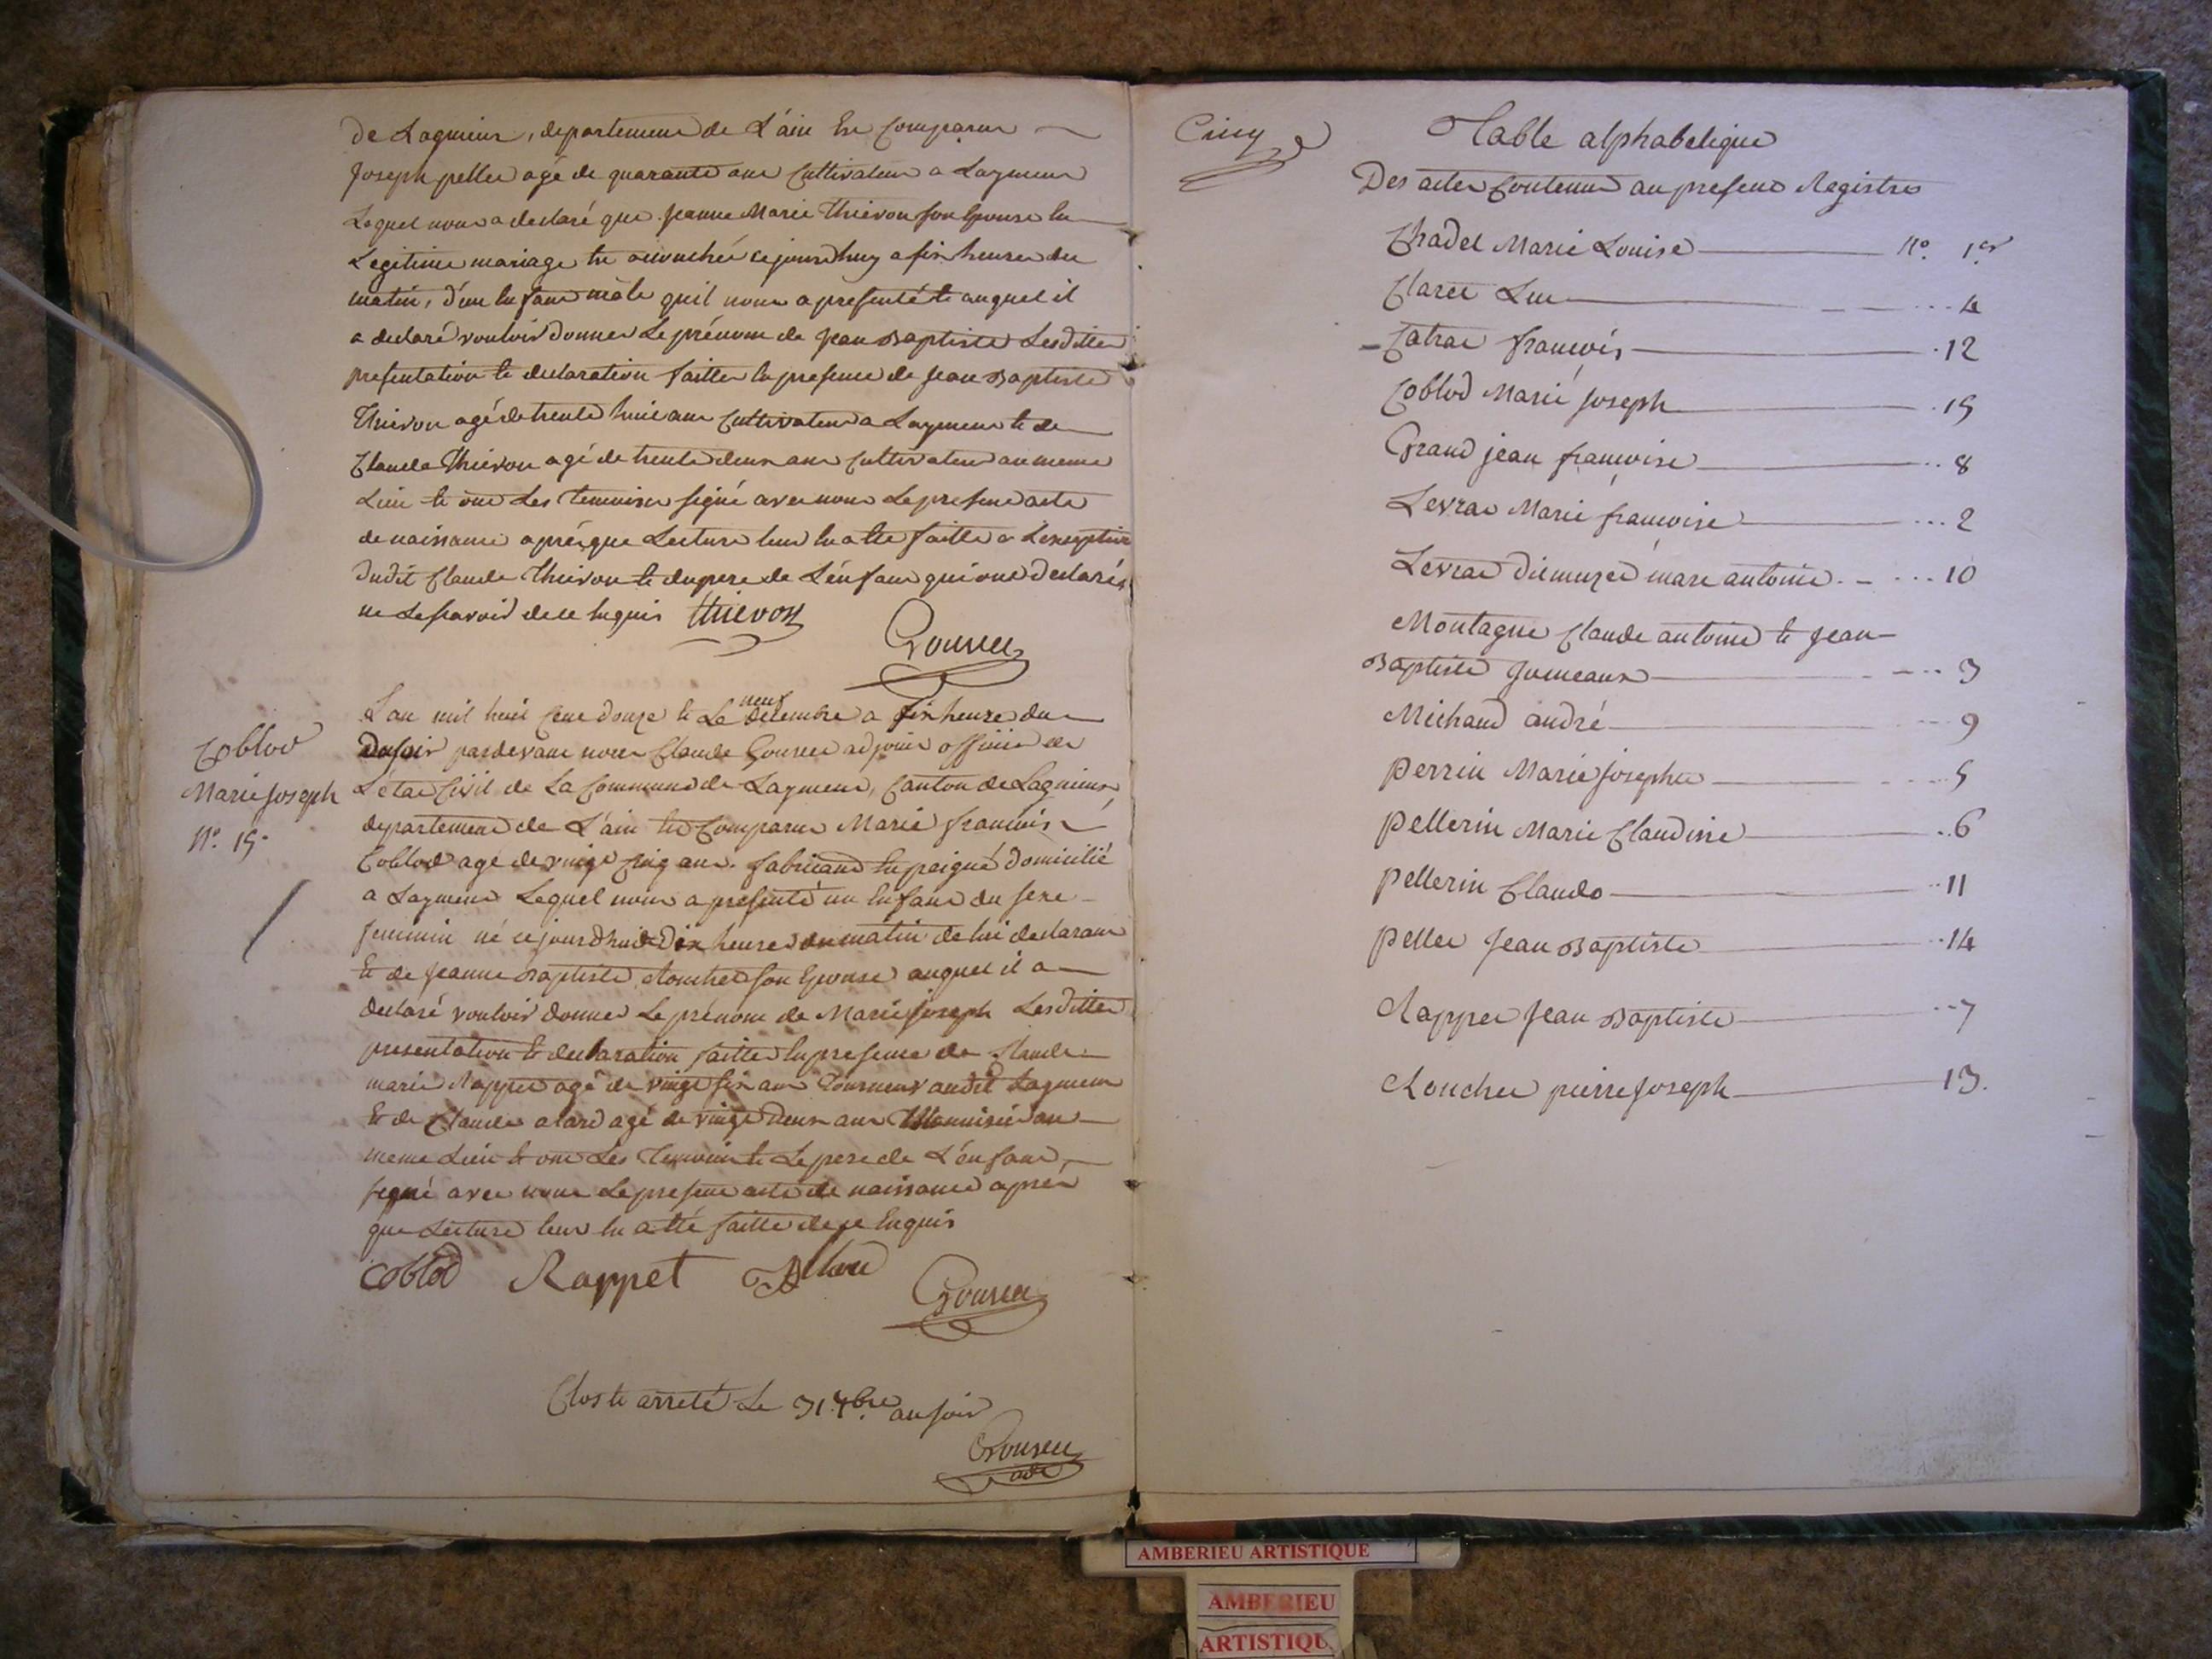 de Lagnieu, departement de L'ain Est Comparu
Joseph pellet agé de quarante ans Cultivateur a Laymen
Lequel nous a declaré que Jeanne Marie thievon son Epouse En
Legitime mariage Est acouchée cejourdhuy a six heures du
matin, d'un Enfant mâle quil nous a presenté Et auquel il
a declaré vouloir donner Le prénom de Jean Baptiste Lesdittes
presentation Et declaration faittes En presence de Jean Baptiste
thievon agé de trente huit ans Cultivateur a Laymen Et de
Claude thievon agé de trente deux ans Cultivateur au meme
Lieu Et ont Les temoins signé avec nous Le present acte
de naissance aprés que Lecture leur En a Eté faitte a Lexeption
dudit Claude thievon Et du pere de L'énfant qui ont declarés
ne Le savoir de ce Enquis thievon
Gourcu
L'an mil huit Cent douze Et Le neuf decembre a six heure du
du soir pardevant nous Claude Gourcu adjoint officier de
L'état Civil de La Commune de Laymen, Canton de Lagnieu,
departement de L'ain Est Comparu Marie francois
Coblod agé de vingt Cinq ans fabricant En peigne domicilié
a Laymen Lequel nous a presenté un Enfant du sexe
feminin né cejourdhui a Dix heures du matin de lui declarant
Et de Jeanne Baptiste Rouchet son Epouse auquel il a
declaré vouloir donner Le prénom de Marie Joseph Lesdittes
presentation Et declaration faittes En presence de Claude
marie Rappet agé de vingt six ans tourneur audit Laymen
Et de Claude alard agé de vingt deux ans Menuisié au
meme Lieu Et ont Les temoins Et Le pere de L'énfant,
signé avec nous Le present acte de naissance aprés
que Lecture leur En a Eté faitte de ce Enquis
Coblod Rappet Alard
Gourcu
Coblod
Marie Joseph
N.° 15.
Clos Et arreté Le 31 Xbre au soir
Gourcu
adt
Cinq
Table alphabetique
Des actes Contenus au present Registre
Chadel Marie Louise N.° 1er
Claret Luc 4
Catrat francois 12
Coblod Marie Joseph 15
Grand jean francoise 8
Levrat Marie francoise 2
Levrat marc antoine 10
Montagne Claude antoine Et Jean
Baptiste Jumeaux 3
Michaud andré 9
perrin Marie Josephte 5
pellerin Marie Claudine 6
pellerin Claude 11
pellet Jean Baptiste 14
Rappet Jean Baptiste 7
Rouchet pierre Joseph 13.
AMBERIEU ARTISTIQUE
AMBERIEU
ARTISTIQU